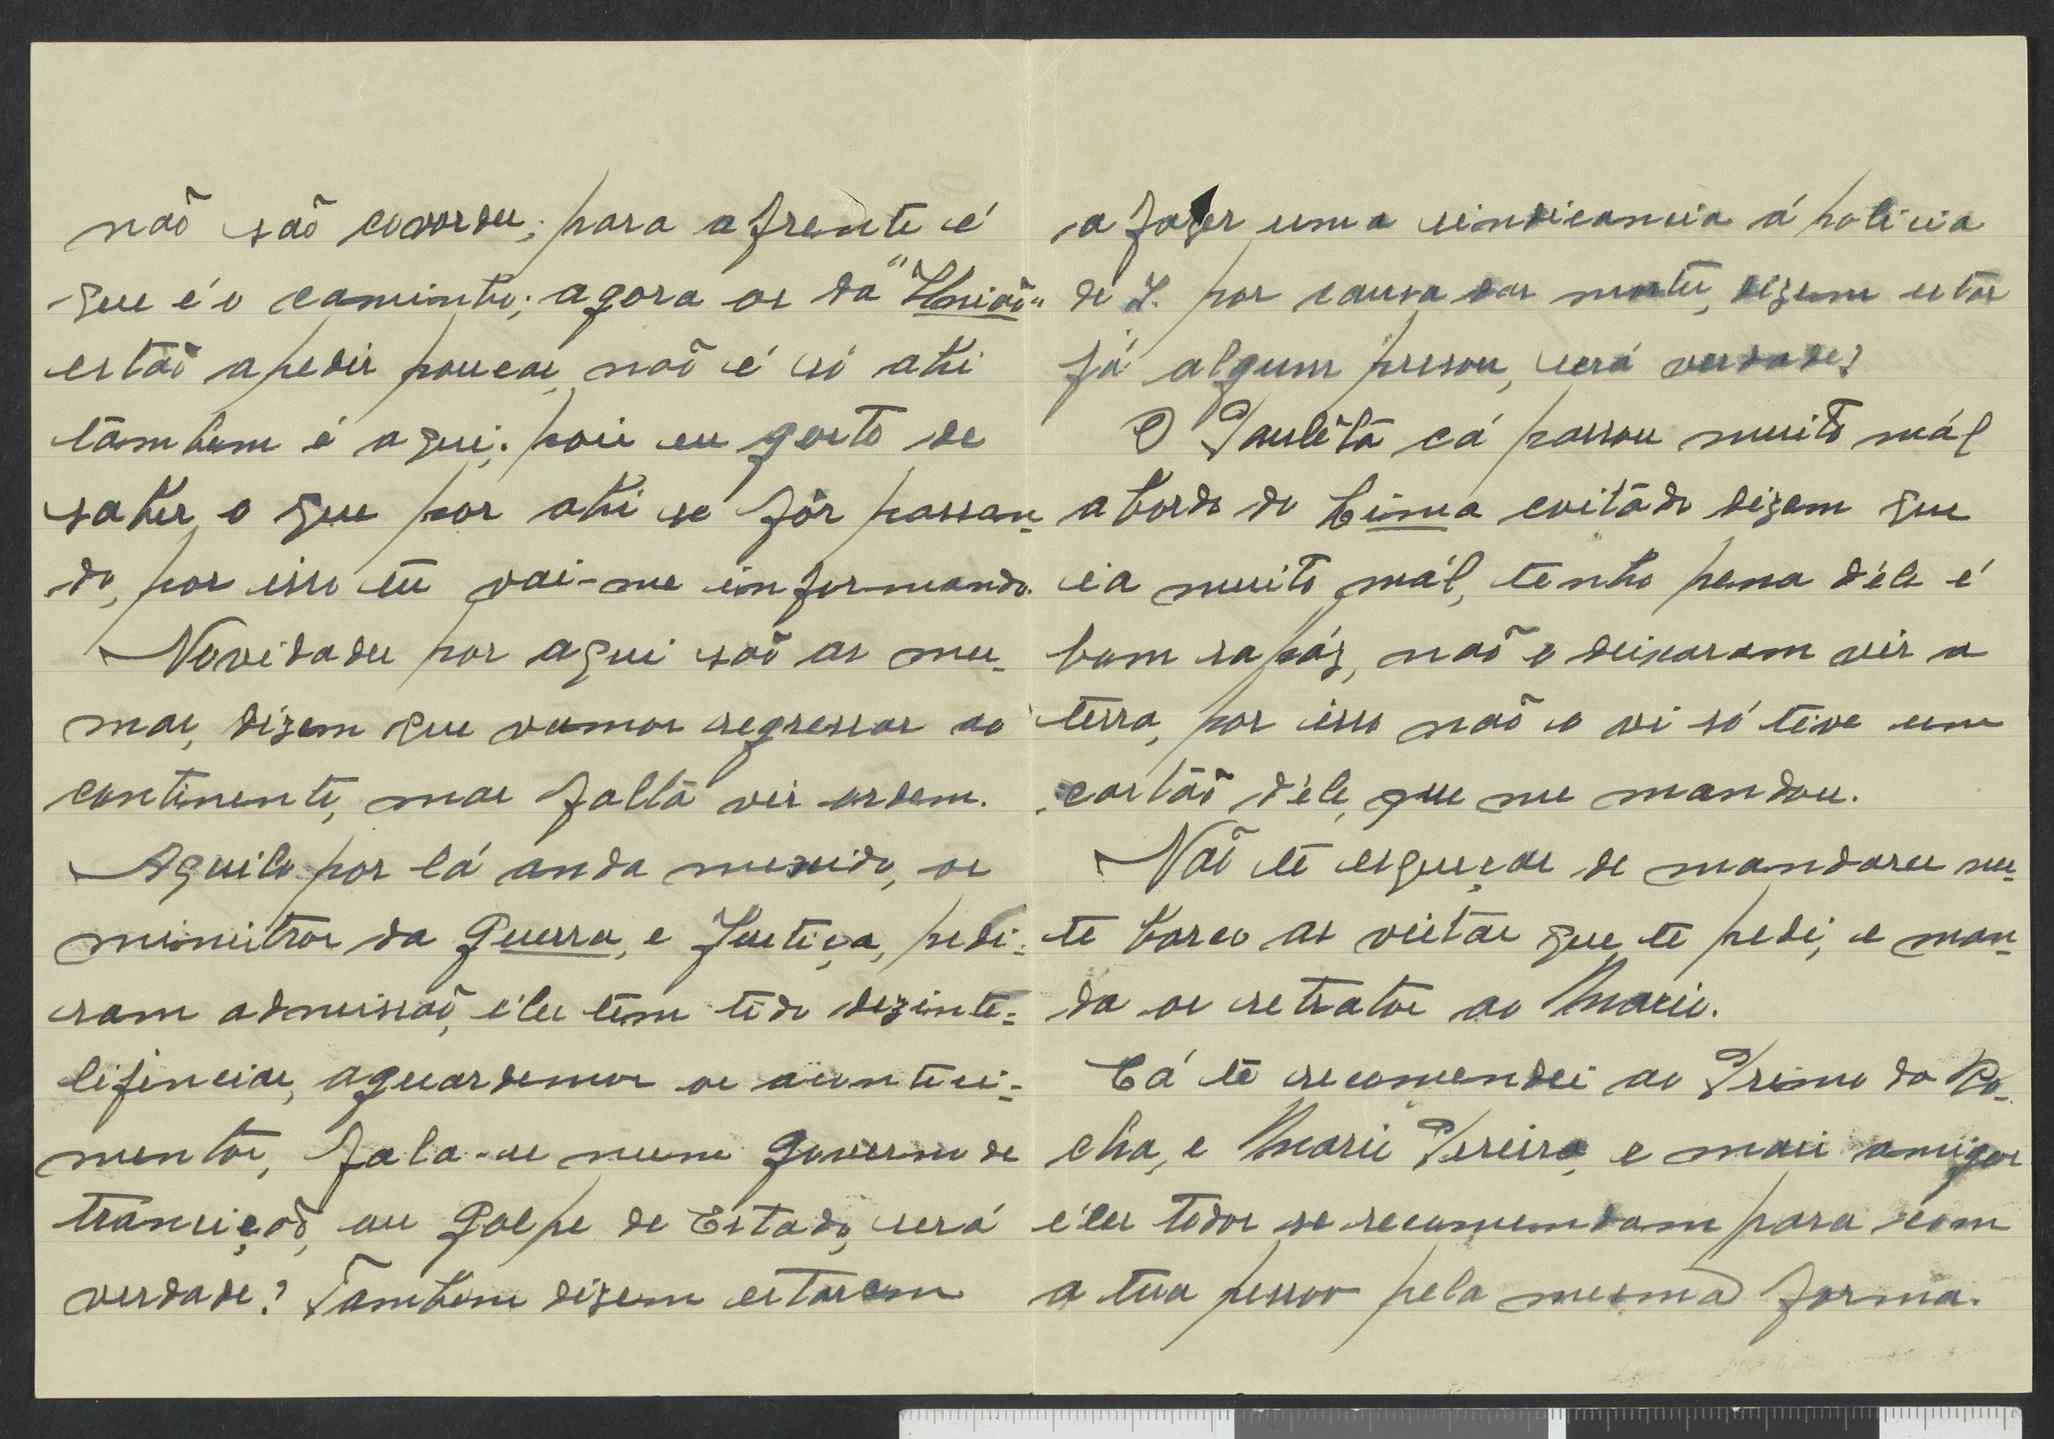 não são covardes; para a frente é
que é o caminho; agora os da "União"
estão a pedir poucas, não é só ahi
tambem é aqui; pois eu gosto de
saber o que por ahi se fôr passan-
do, por isso tu vai-me informando.
Novidades por aqui são as mes-
mas, dizem que vamos regressar ao
continente, mas falta vir ordem.
Aquilo por lá anda mexido, os
ministros da Guerra, e Justiça, pedi-
ram admissão, éles têm tido dezinte-
ligencias, aguardemos os aconteci-
mentos, fala-se num Governo de
transição, ou Golpe de Estado, será
verdade? Tambem dizem estarem
a fazer uma sindicancia á policia
de I. por causa das mortes, dizem estar
já alguns presos, será verdade?
O Pauleta cá passou muito mál
a bordo do Lima coitado dizem que
ia muito mál, tenho pena déle é
bom rapáz, não o deixaram vir a
terra, por isso não o vi só tive um
cartão déle, que me mandou.
Não te esqueças de mandares nes-
te barco as vistas que te pedi, e man-
da os retratos ao Mario.
Cá te recomendei ao Primo da Ro-
cha, e Mario Pereira, e mais amigos
éles todos se recomendam para com
a tua pessoa pela mesma forma.